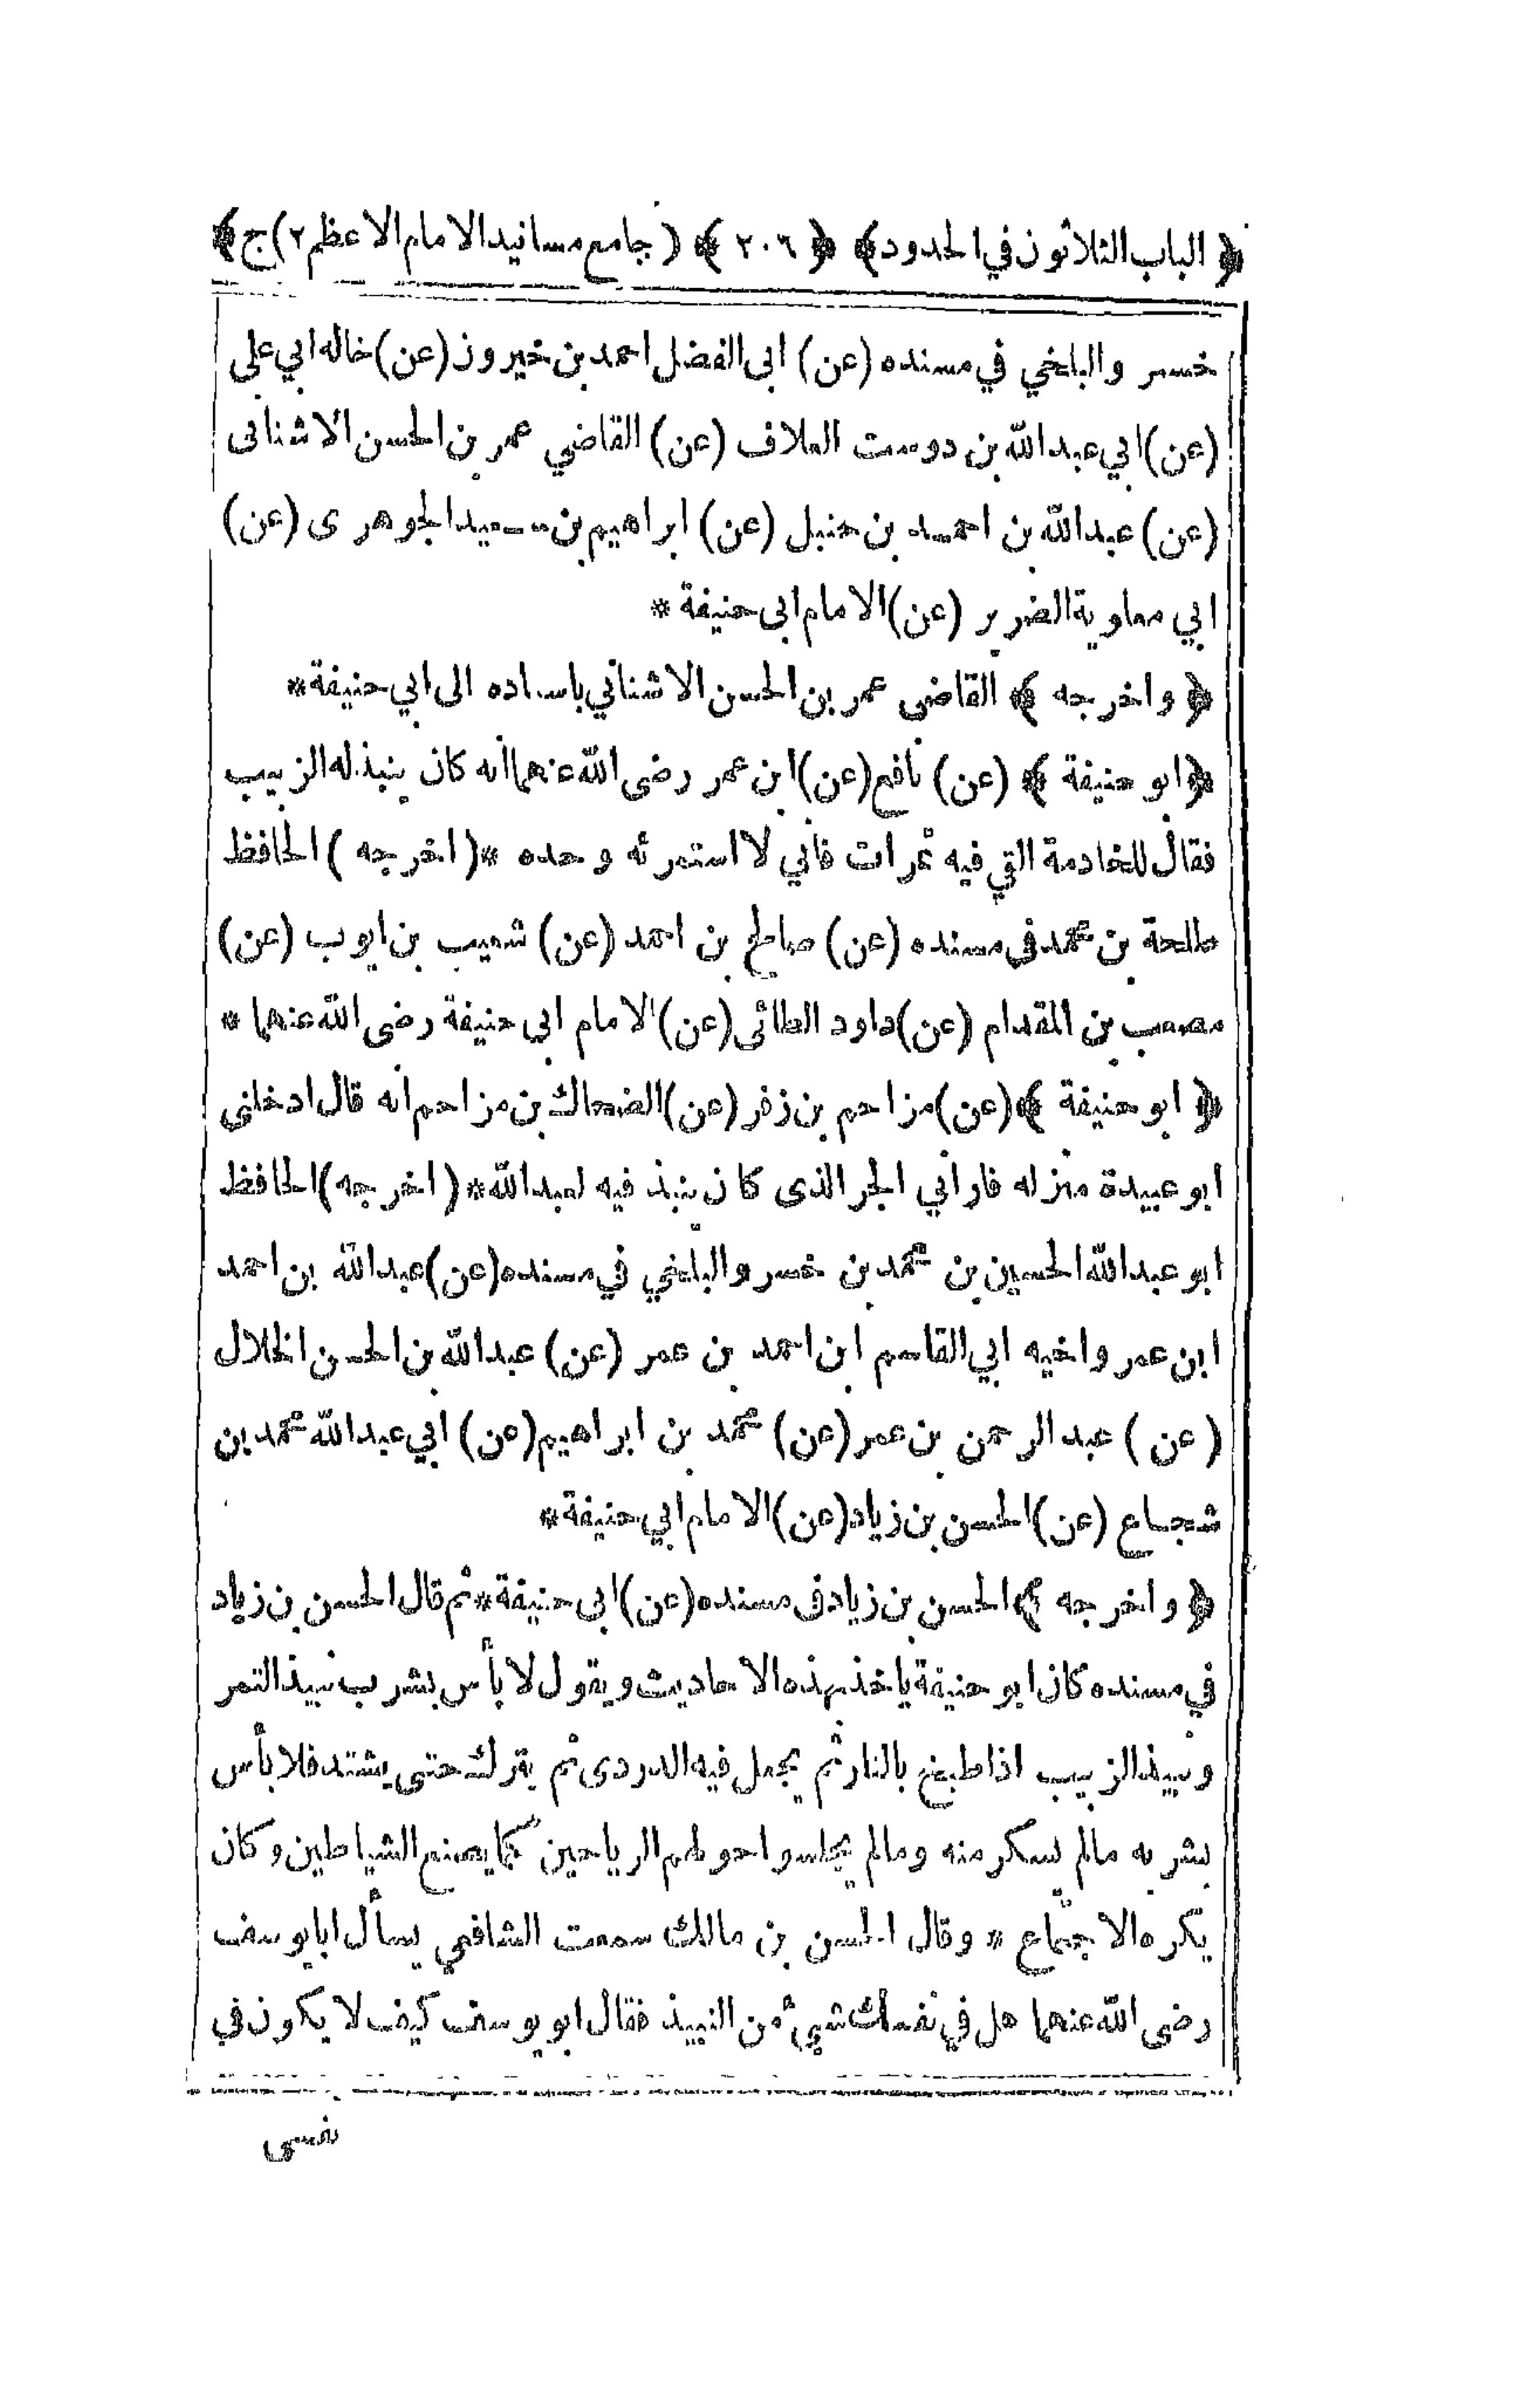 ﴿ الباب الثلاثون في الحدود ﴾ ﴿ ٢٠٦ ﴾ ( جامع مسانيد الامام الاعظم ٢) ج ﴾
خسرو البلخي في مسنده (عن) ابى الفضل احمد بن خيرون (عن) خاله ابي على
(عن) ابي عبد الله بن دوست العلاف (عن) القاضي عمر بن الحسن الاشنانى
(عن) عبد الله بن احمد بن حنبل (عن) ابراهيم بن سعيد الجوهرى (عن)
ابي معاوية الضرير (عن) الامام ابى حنيفة *
﴿ واخرجه ﴾ القاضى عمر بن الحسن الاشناني باسناده الى ابي حنيفة *
﴿ ابو حنيفة ﴾ (عن) نافع (عن) ابن عمر رضى الله عنهما انه كان ينبذ له الزبيب
فقال للخادمة القي فيه تمرات فاني لا استمرئه وحده * ( اخرجه ) الحافظ
طلحة بن محمد فى مسنده (عن) صالح بن احمد (عن) شعيب بن ايوب (عن)
مصعب بن المقدام (عن) داود الطائى (عن) الامام ابي حنيفة رضى الله عنهما *
﴿ ابو حنيفة ﴾ (عن) مزاحم بن زفر (عن) الضحاك بن مزاحم انه قال ادخلنى
ابو عبيدة منزله فاراني الجر الذى كان ينبذ فيه لعبد الله * ( اخرجه ) الحافظ
ابو عبد الله الحسين بن محمد بن خسرو البلخي في مسنده (عن) عبد الله بن احمد
ابن عمر واخيه ابي القاسم ابن احمد بن عمر (عن) عبد الله بن الحسن الخلال
(عن) عبد الرحمن بن عمر (عن) محمد بن ابراهيم (عن) ابي عبد الله محمد بن
شجاع (عن) الحسن بن زياد (عن) الامام ابي حنيفة *
﴿ واخرجه ﴾ الحسن بن زياد فى مسنده (عن) ابى حنيفة * ثم قال الحسن بن زياد
في مسنده كان ابو حنيفة ياخذ بهذه الاحاديث ويقول لا بأس بشرب نبيذ التمر
ونبيذ الزبيب اذا طبخ بالنار ثم يجعل فيه الدردى ثم يترك حتى يشتد فلا بأس
بشربه مالم يسكر منه ومالم يجلسوا حولهم الرياحين كما يصنع الشياطين وكان
يكره الاجتماع * وقال الحسن بن مالك سمعت الشافعي يسأل ابا يوسف
رضى الله عنهما هل في نفسك شيئ من النبيذ فقال ابو يوسف كيف لا يكون في
نفسى